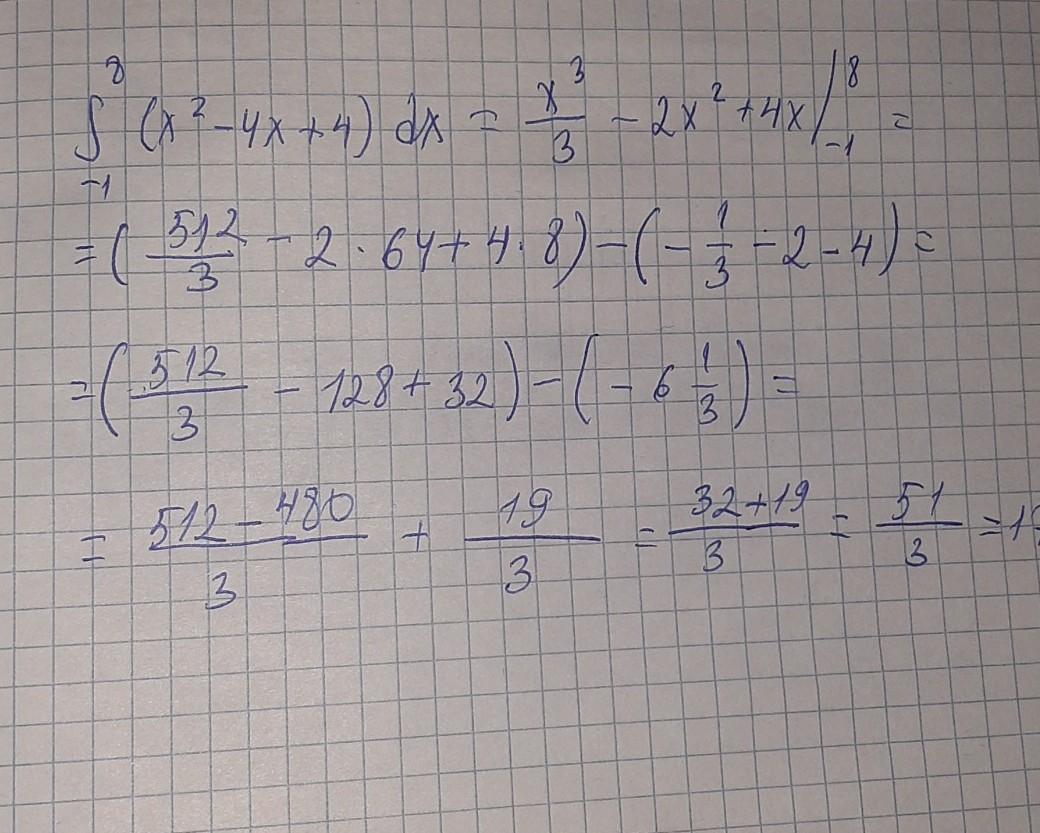 ∫₋₁⁸ (x² - 4x + 4) dx = x³/3 - 2x² + 4x |₋₁⁸ =
= (512/3 - 2 · 64 + 4 · 8) - (-1/3 - 2 - 4) =
= (512/3 - 128 + 32) - (-6 1/3) =
= (512 - 480)/3 + 19/3 = (32 + 19)/3 = 51/3 = 1